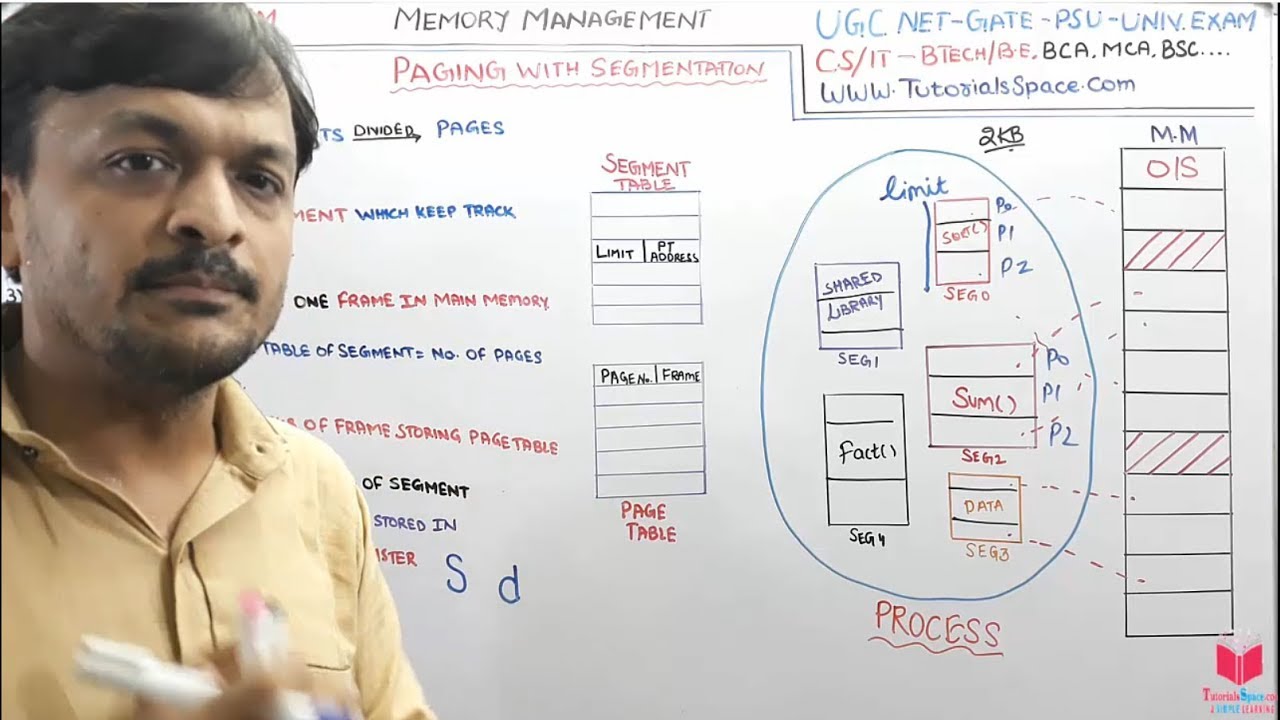 M
MEMORY MANAGEMENT
UGC NET-GATE-PSU-UNIV. EXAM
CS/IT-BTECH/B.E, BCA, MCA, BSC....
WWW.TutorialsSpace.com
PAGING WITH SEGMENTATION
TS DIVIDED PAGES
MENT WHICH KEEP TRACK
3)
ONE FRAME IN MAIN MEMORY
TABLE OF SEGMENT = NO. OF PAGES
OF FRAME STORING PAGE TABLE
OF SEGMENT
STORED IN
ISTER
S d
SEGMENT
TABLE
LIMIT PT
ADDRESS
PAGE NO. FRAME
PAGE
TABLE
2KB
limit
P0
Sort() P1
P2
SEG0
SHARED
LIBRARY
SEG1
P0
Sum() P1
P2
SEG2
fact()
SEG4
DATA
SEG3
PROCESS
M.M
O/S
TutorialsSpace.co
A SIMPLE LEARNING